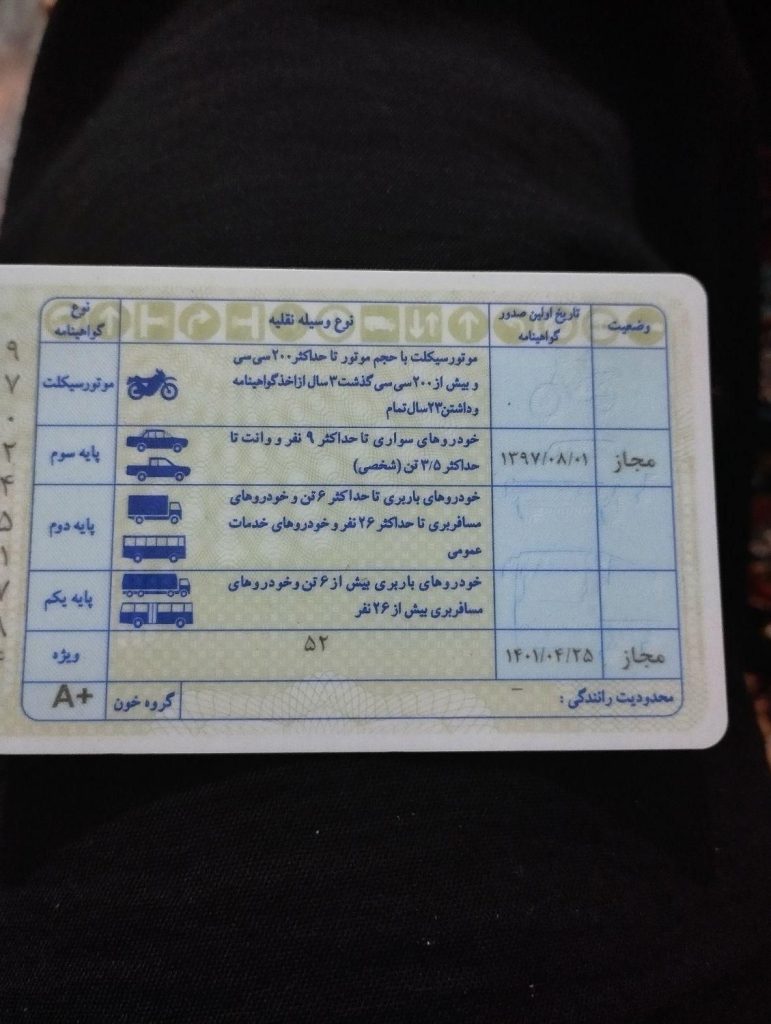 نوع گواهینامه
نوع وسیله نقلیه
تاریخ اولین صدور گواهینامه
وضعیت
موتورسیکلت
موتورسیکلت با حجم موتور تا حداکثر ۲۰۰ سی سی
و بیش از ۲۰۰ سی سی گذشت ۳ سال از اخذ گواهینامه
و داشتن ۲۳ سال تمام
پایه سوم
خودروهای سواری تا حداکثر ۹ نفر و وانت تا
حداکثر ۳/۵ تن (شخصی)
۱۳۹۷/۰۸/۰۱
مجاز
پایه دوم
خودروهای باربری تا حداکثر ۶ تن و خودروهای
مسافربری تا حداکثر ۲۶ نفر و خودروهای خدمات
عمومی
پایه یکم
خودروهای باربری بیش از ۶ تن و خودروهای
مسافربری بیش از ۲۶ نفر
ویژه
۵۲
۱۴۰۱/۰۴/۲۵
مجاز
گروه خون
A+
محدودیت رانندگی : –
۹
۷
۰
۲
۴
۵
۱
۷
۸